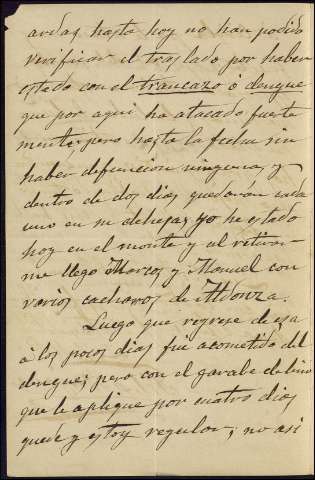 ardas, hasta hoy no han podido
verificar el traslado por haber
estado con el trancazo ó dengue
que por aqui ha atacado fuerte
mente, pero hasta la fecha sin
haber defuncion ninguna, y
dentro de dos dias quedarán cada
uno en su dehesa; yo he estado
hoy en el monte y al retirar-
me llegó Marcos y Manuel con
varios cacharos de
Luego que regrese de esa
á los pocos dias fui acometido del
dengue; pero con el garabe de lino
que le aplique por cuatro dias
quede y estoy regular; no asi